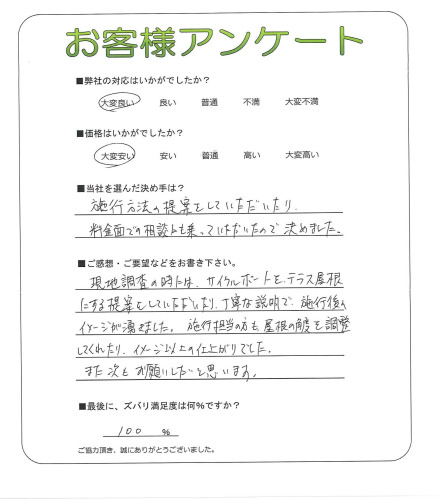 お客様アンケート
■弊社の対応はいかがでしたか?
大変良い 良い 普通 不満 大変不満
■価格はいかがでしたか?
大変安い 安い 普通 高い 大変高い
■当社を選んだ決め手は?
施行方法の提案をしていただいたり、
料金面での相談にも乗っていただいたので決めました。
■ご感想・ご要望などをお書き下さい。
現地調査の時には、サイクルポートを、テラス屋根
にする提案をしていただいたり、丁寧な説明で、施行後の
イメージが湧きました。施行担当の方も屋根の角度を調整
してくれたり、イメージ以上の仕上がりでした。
また次もお願いしたいと思います。
■最後に、ズバリ満足度は何%ですか?
100 %
ご協力頂き、誠にありがとうございました。